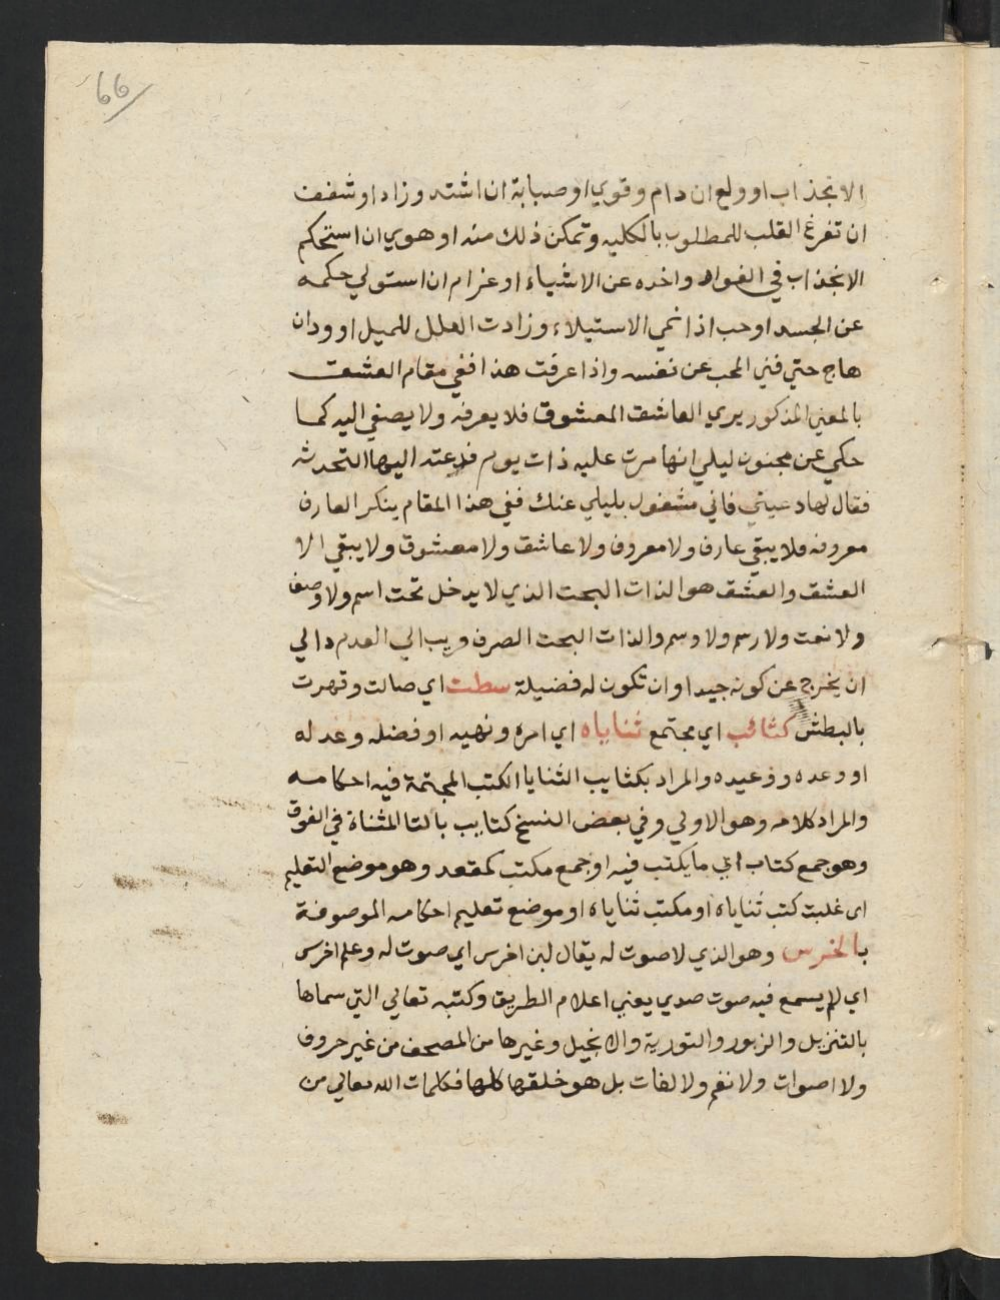 66
الانجذاب او ولع ان دام وقوي او صبابة ان اشتد وزاد او شغف
ان تفرغ القلب للمطلوب بالكليه وتمكن ذلك منه او هوي ان استحكم
الانجذاب في الفواد واخده عن الاشياء او غرام ان استولي حكمه
عن الجسد او حب اذا نمي الاستيلاء وزادت العلل للميل او ودان
هاج حتي فني المحب عن نفسه واذا عرفت هذا ففي مقام العشق
بالمعني المذكور يري العاشق المعشوق فلا يعرفه ولا يصغي اليه كما
حكي عن مجنون ليلي انها مرت عليه ذات يوم فدعته اليها التحدثه
فقال لها دعيني فاني مشغول بليلي عنك ففي هذا المقام ينكر العارف
معروفه فلا يبقي عارف ولا معروف ولا عاشق ولا معشوق ولا يبقي الا
العشق والعشق هو الذات البحت الذي لا يدخل تحت اسم ولا وصف
ولا نعت ولا رسم ولا وسم والذات البحت الصرف قريب الي العدم دالي
ان يخرج عن كونه جيدا وان تكون له فضيلة سطت اي صالت وقهرت
بالبطش كثائب اي مجتمع ثناياه اي امره ونهيه او فضله وعدله
او وعده ووعيده والمراد بكثايب الثنايا الكتب المجتمعة فيه احكامه
والمراد كلامه وهو الاولي وفي بعض النسخ كتايب بالتا المثناة في الفوق
وهو جمع كتاب اي ما يكتب فيه او جمع مكتب كمقعد وهو موضع التعليم
اي غلبت كتب ثناياه او مكتب ثناياه او موضع تعليم احكامه الموصوفة
بالخرس وهو الذي لا صوت له يقال لبن اخرس اي صوت له وعلم اخرس
اي لم يسمع فيه صوت صدي يعني اعلام الطريق وكتبه تعالي التي سماها
بالتنزيل والزبور والتورية والانجيل وغيرها من المصحف من غير حروف
ولا اصوات ولا نغم ولا لغات بل هو خلقها كلها فكلمات الله تعالي من